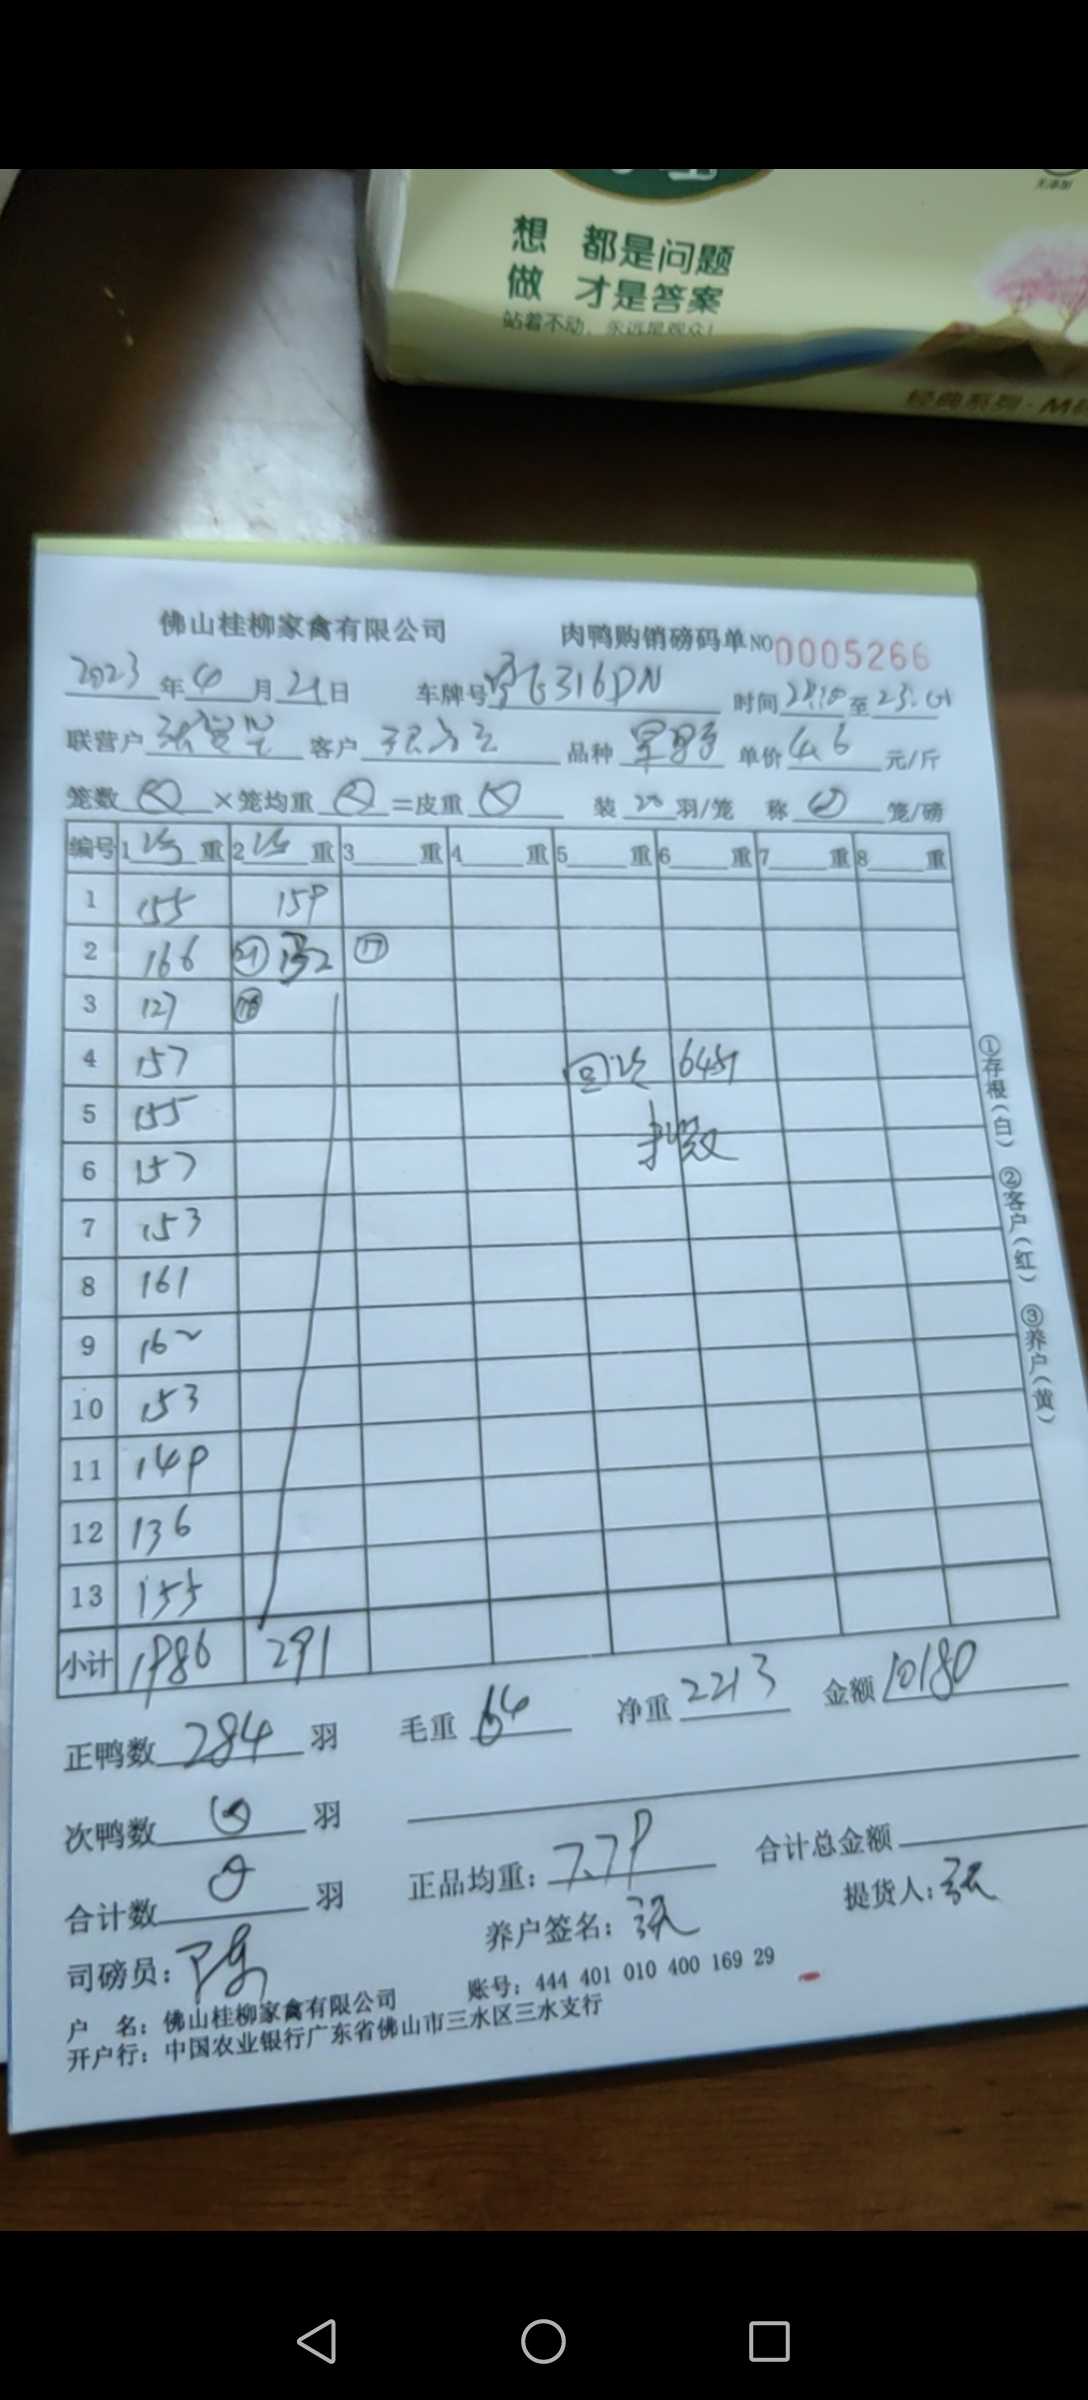 想 都是问题
做 才是答案
站着不动，永远是观众！
经典系列·M
佛山桂柳家禽有限公司 肉鸭购销磅码单 NO 0005266
2023年4月21日 车牌号 316DN 时间 至 23:01
联营户 客户 品种 单价 4.6 元/斤
笼数 ×笼均重 =皮重 装 20 羽/笼 称 笼/磅
编号 1 重 2 重 3 重 4 重 5 重 6 重 7 重 8 重
1 155 159
2 166 21 152 17
3 127 18
4 157 64斤
5 155
6 157
7 153
8 161
9 162
10 153
11 149
12 136
13 155
小计 1986 291
①存根(白) ②客户(红) ③养户(黄)
正鸭数 284 羽 毛重 64 净重 2213 金额 10180
次鸭数 羽
合计数 羽 正品均重: 7.79 合计总金额
司磅员: 陈 养户签名: 张 提货人: 张
户 名: 佛山桂柳家禽有限公司 账号: 444 401 010 400 169 29
开户行: 中国农业银行广东省佛山市三水区三水支行